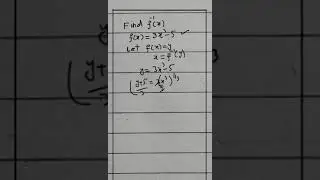 Find f⁻¹(x)
f(x) = 3x³-5 ✓
Let f(x)=y
x = f⁻¹(y)
y = 3x³-5
(y+5/3 = 3x³/3)^1/3